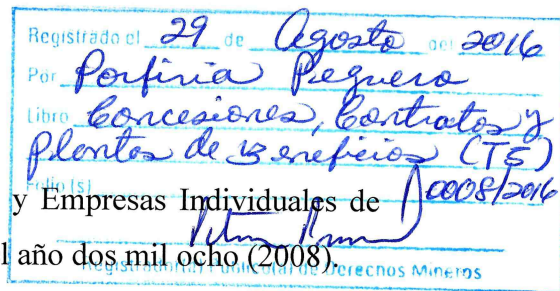 Registrado el 29 de Agosto del 2016
Por Porfiria Peguero
Libro Concesiones, Contratos y
Plantas de Beneficios (T5)
Folio (s) 0008/2016
y Empresas Individuales de
l año dos mil ocho (2008).
Registrador(a) Público(a) de Derechos Mineros